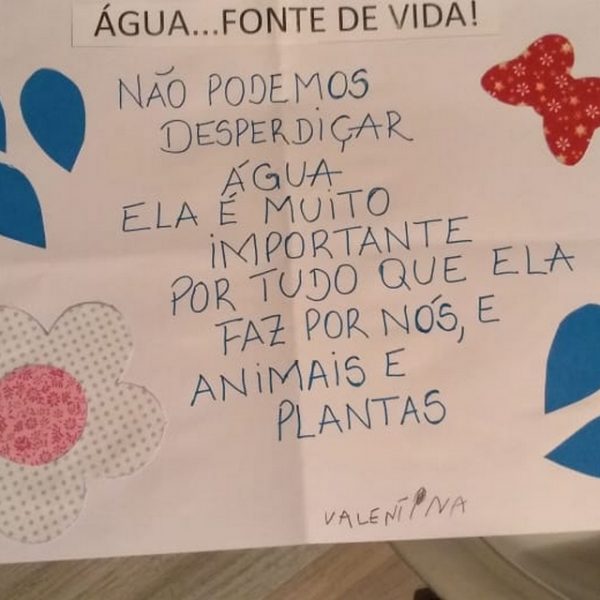 ÁGUA...FONTE DE VIDA!
NÃO PODEMOS
DESPERDIÇAR
ÁGUA
ELA É MUITO
IMPORTANTE
POR TUDO QUE ELA
FAZ POR NÓS, E
ANIMAIS E
PLANTAS
VALENTINA